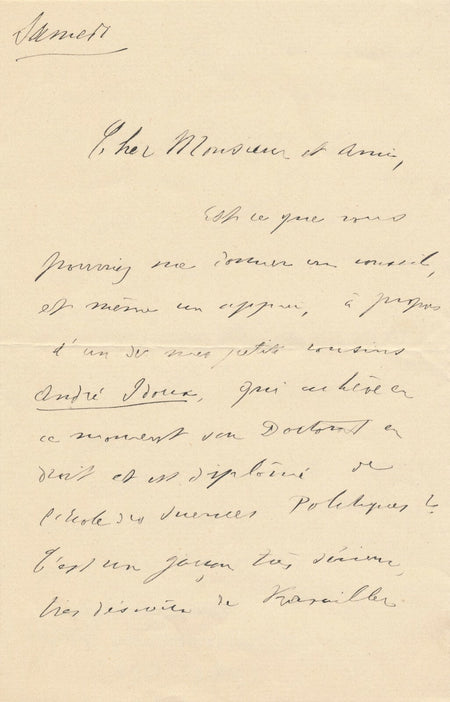 Samedi
Cher Monsieur et ami,
Est ce que vous
pourriez me donner un conseil,
et même un appui, à propos
d'un de mes petits cousins
André Idoux, qui achève en
ce moment son Doctorat en
droit et est diplômé de
l'Ecole des Sciences Politiques ?
C'est un garçon très sérieux,
très désireux de travailler